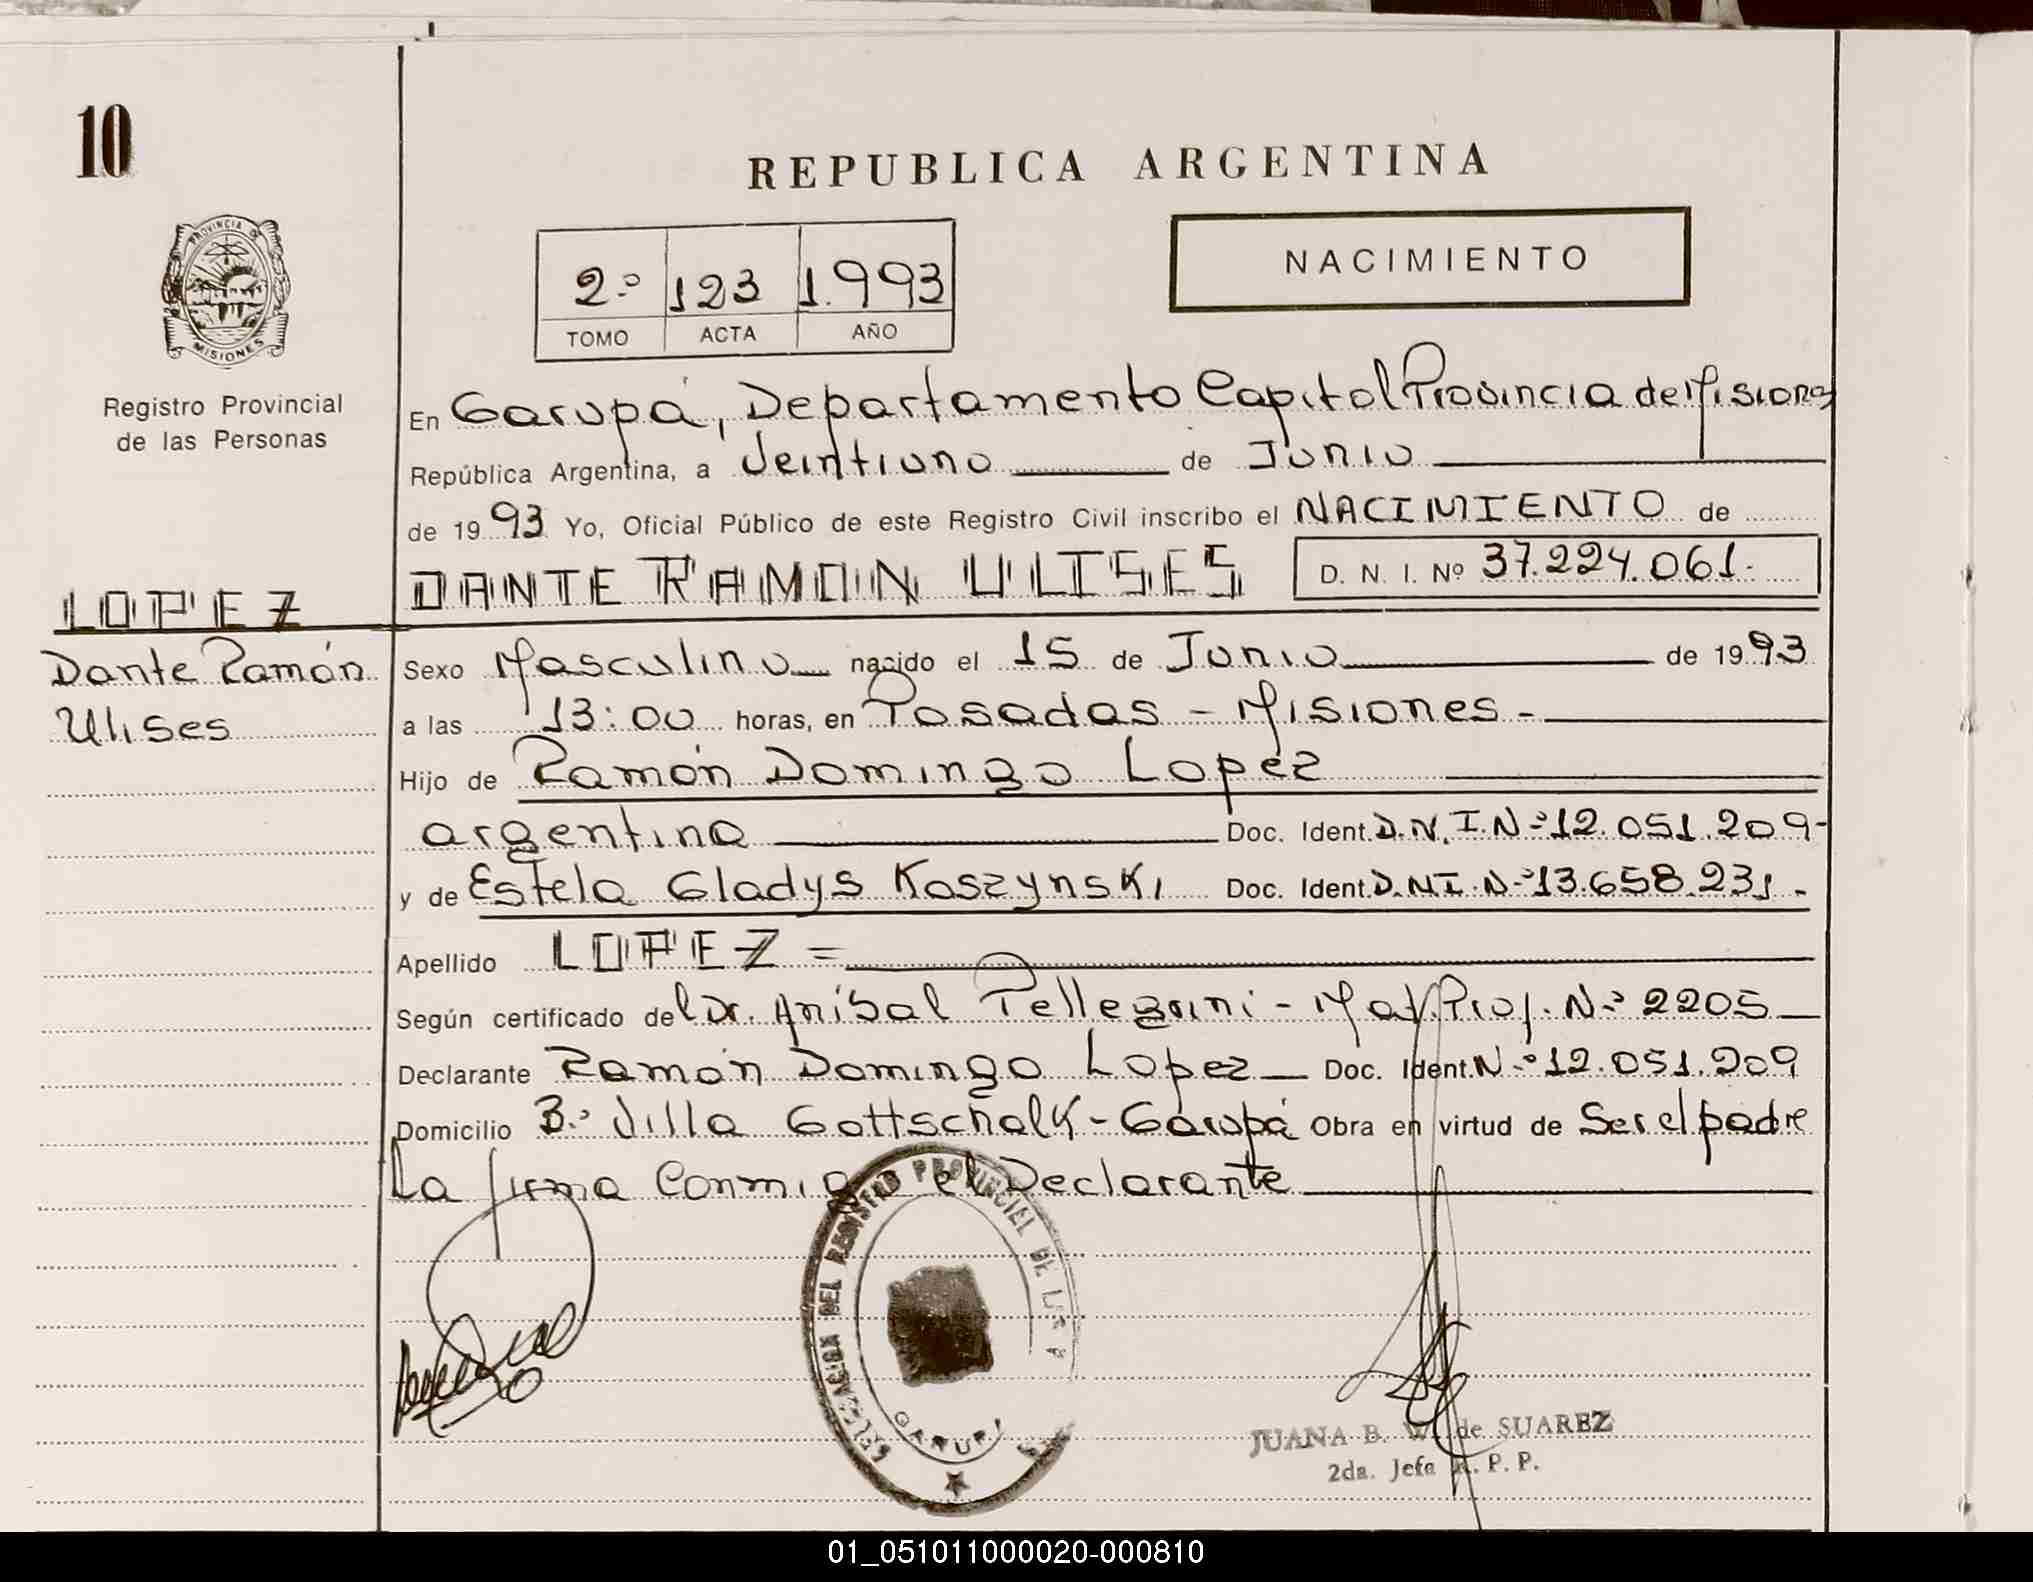 10
REPUBLICA ARGENTINA
PROVINCIA DE
MISIONES
Registro Provincial
de las Personas
2º 123 1.993
TOMO ACTA AÑO
NACIMIENTO
En Garupá, Departamento Capital Provincia de Misiones
República Argentina, a Veintiuno de Junio
de 1993 Yo, Oficial Público de este Registro Civil inscribo el NACIMIENTO de
LOPEZ
DANTE RAMON ULISES D. N. I. Nº 37.224.061.
Dante Ramón
Ulises
Sexo Masculino nacido el 15 de Junio de 1993
a las 13:00 horas, en Posadas - Misiones -
Hijo de Ramón Domingo Lopez
argentina Doc. Ident. D.N.I.Nº 12.051.209-
y de Estela Gladys Koszynski Doc. Ident. D.N.I.Nº 13.658.231.-
Apellido LOPEZ =
Según certificado del Dr. Aníbal Pellegrini - Mat. Prof. Nº 2205
Declarante Ramón Domingo Lopez Doc. Ident. Nº 12.051.209
Domicilio Bº Villa Gottschalk - Garupá Obra en virtud de Ser el padre
La firma Conmigo el Declarante
DELEGACION DEL REGISTRO PROVINCIAL DE LAS
GARUPA
JUANA B. W. de SUAREZ
2da. Jefa R. P. P.
01_051011000020-000810